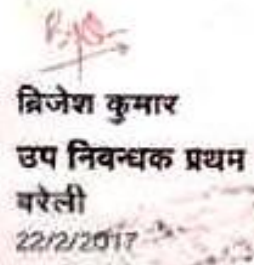 ब्रिजेश कुमार
उप निबन्धक प्रथम
बरेली
22/2/2017